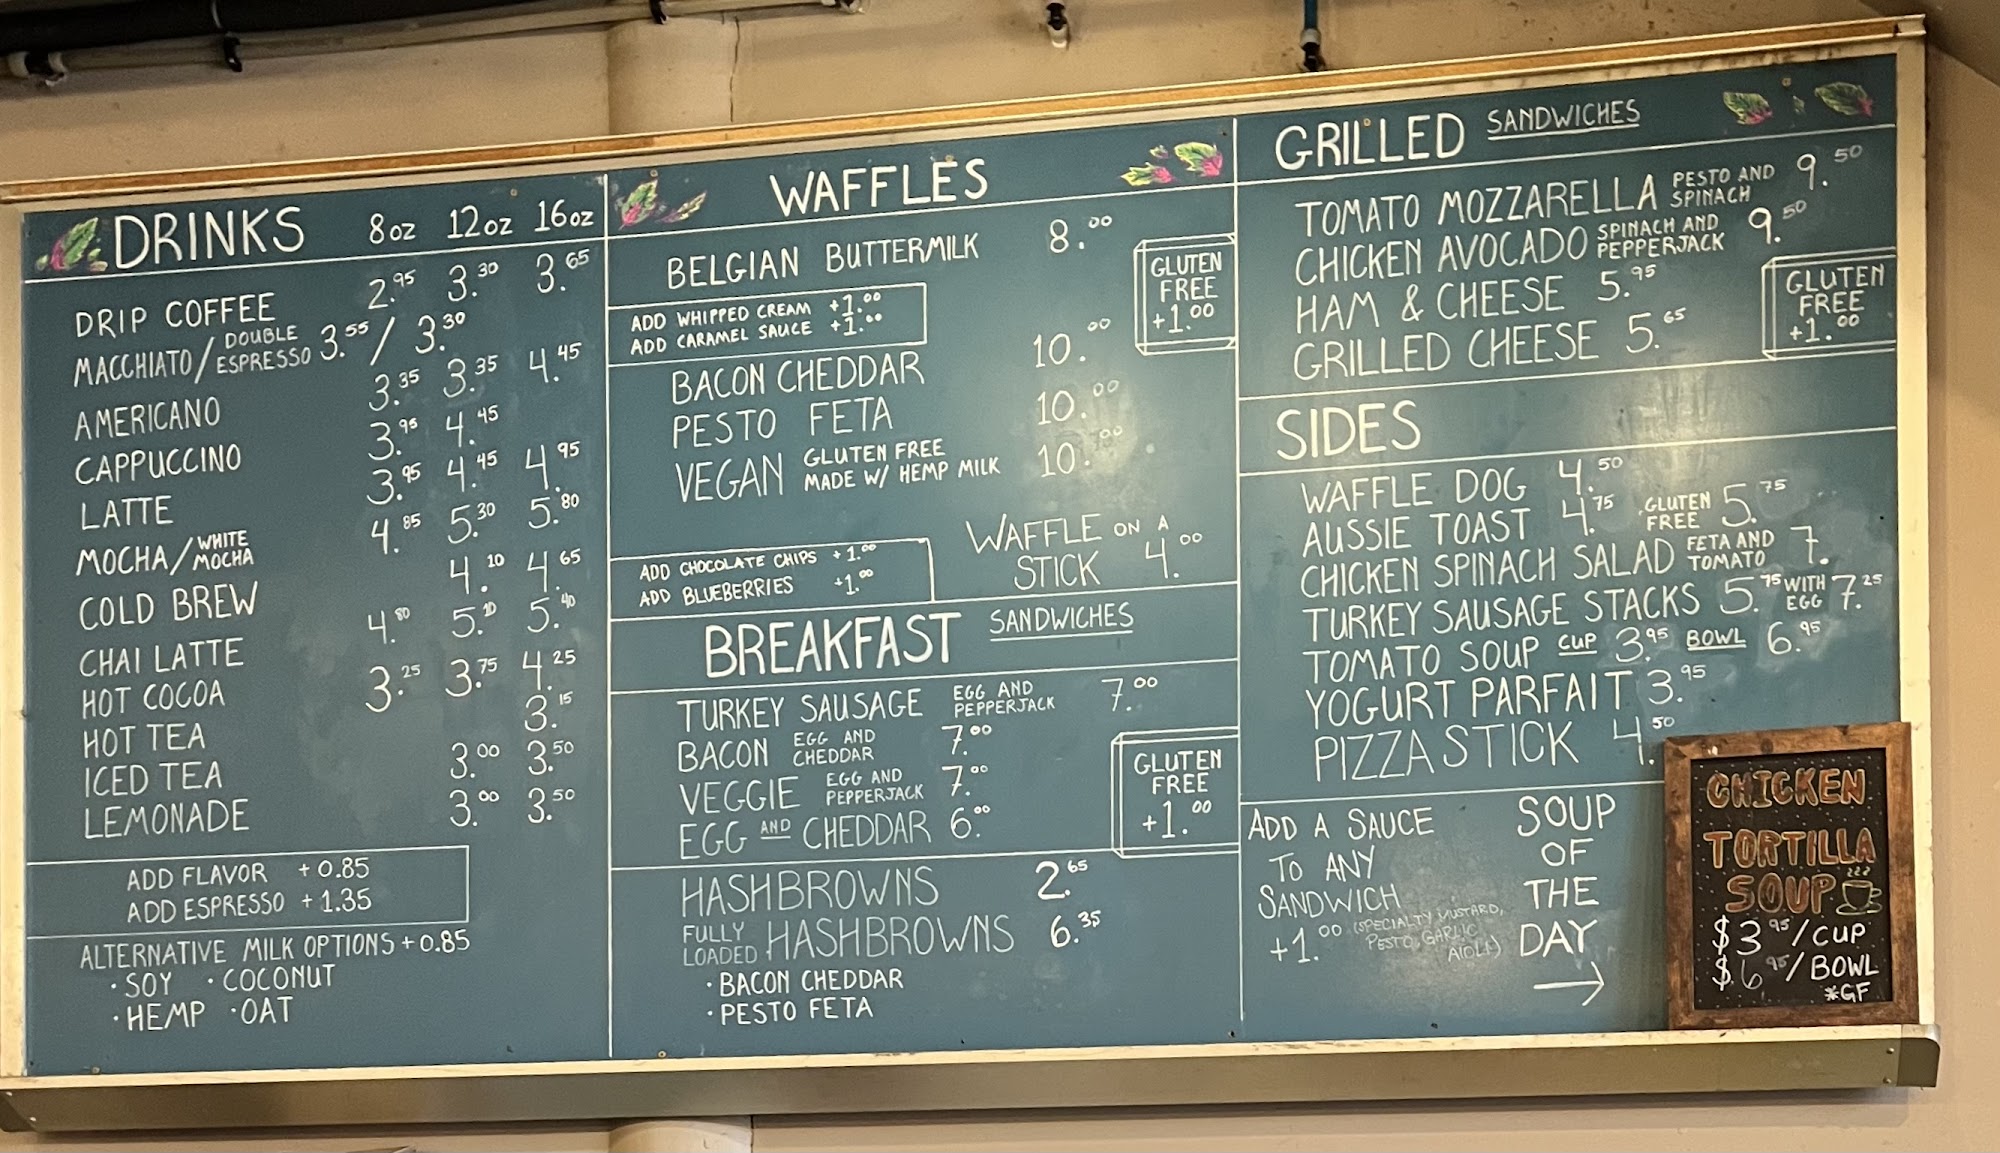 DRINKS 8oz 12oz 16oz
DRIP COFFEE 2.95 3.30 3.65
MACCHIATO/DOUBLE ESPRESSO 3.55 / 3.30
AMERICANO 3.35 3.35 4.45
CAPPUCCINO 3.95 4.45
LATTE 3.95 4.45 4.95
MOCHA/WHITE MOCHA 4.85 5.30 5.80
COLD BREW 4.10 4.65
CHAI LATTE 4.80 5.10 5.40
HOT COCOA 3.25 3.75 4.25
HOT TEA 3.15
ICED TEA 3.00 3.50
LEMONADE 3.00 3.50
ADD FLAVOR +0.85
ADD ESPRESSO +1.35
ALTERNATIVE MILK OPTIONS +0.85
·SOY ·COCONUT
·HEMP ·OAT
WAFFLES
BELGIAN BUTTERMILK 8.00
ADD WHIPPED CREAM +1.00
ADD CARAMEL SAUCE +1.00
GLUTEN
FREE
+1.00
BACON CHEDDAR 10.00
PESTO FETA 10.00
VEGAN GLUTEN FREE MADE W/ HEMP MILK 10.00
ADD CHOCOLATE CHIPS +1.00
ADD BLUEBERRIES +1.00
WAFFLE ON A
STICK 4.00
BREAKFAST SANDWICHES
TURKEY SAUSAGE EGG AND PEPPERJACK 7.00
BACON EGG AND CHEDDAR 7.00
VEGGIE EGG AND PEPPERJACK 7.00
EGG AND CHEDDAR 6.00
GLUTEN
FREE
+1.00
HASHBROWNS 2.65
FULLY LOADED HASHBROWNS 6.35
·BACON CHEDDAR
·PESTO FETA
GRILLED SANDWICHES
TOMATO MOZZARELLA PESTO AND SPINACH 9.50
CHICKEN AVOCADO SPINACH AND PEPPERJACK 9.50
HAM & CHEESE 5.95
GRILLED CHEESE 5.65
GLUTEN
FREE
+1.00
SIDES
WAFFLE DOG 4.50
AUSSIE TOAST 4.75 GLUTEN FREE 5.75
CHICKEN SPINACH SALAD FETA AND TOMATO 7.
TURKEY SAUSAGE STACKS 5.75 WITH EGG 7.25
TOMATO SOUP CUP 3.95 BOWL 6.95
YOGURT PARFAIT 3.95
PIZZA STICK 4.50
ADD A SAUCE
TO ANY
SANDWICH
+1.00 (SPECIALTY MUSTARD,
PESTO, GARLIC
AIOLI)
SOUP
OF
THE
DAY
→
CHICKEN
TORTILLA
SOUP
$3.95/CUP
$6.95/BOWL
*GF